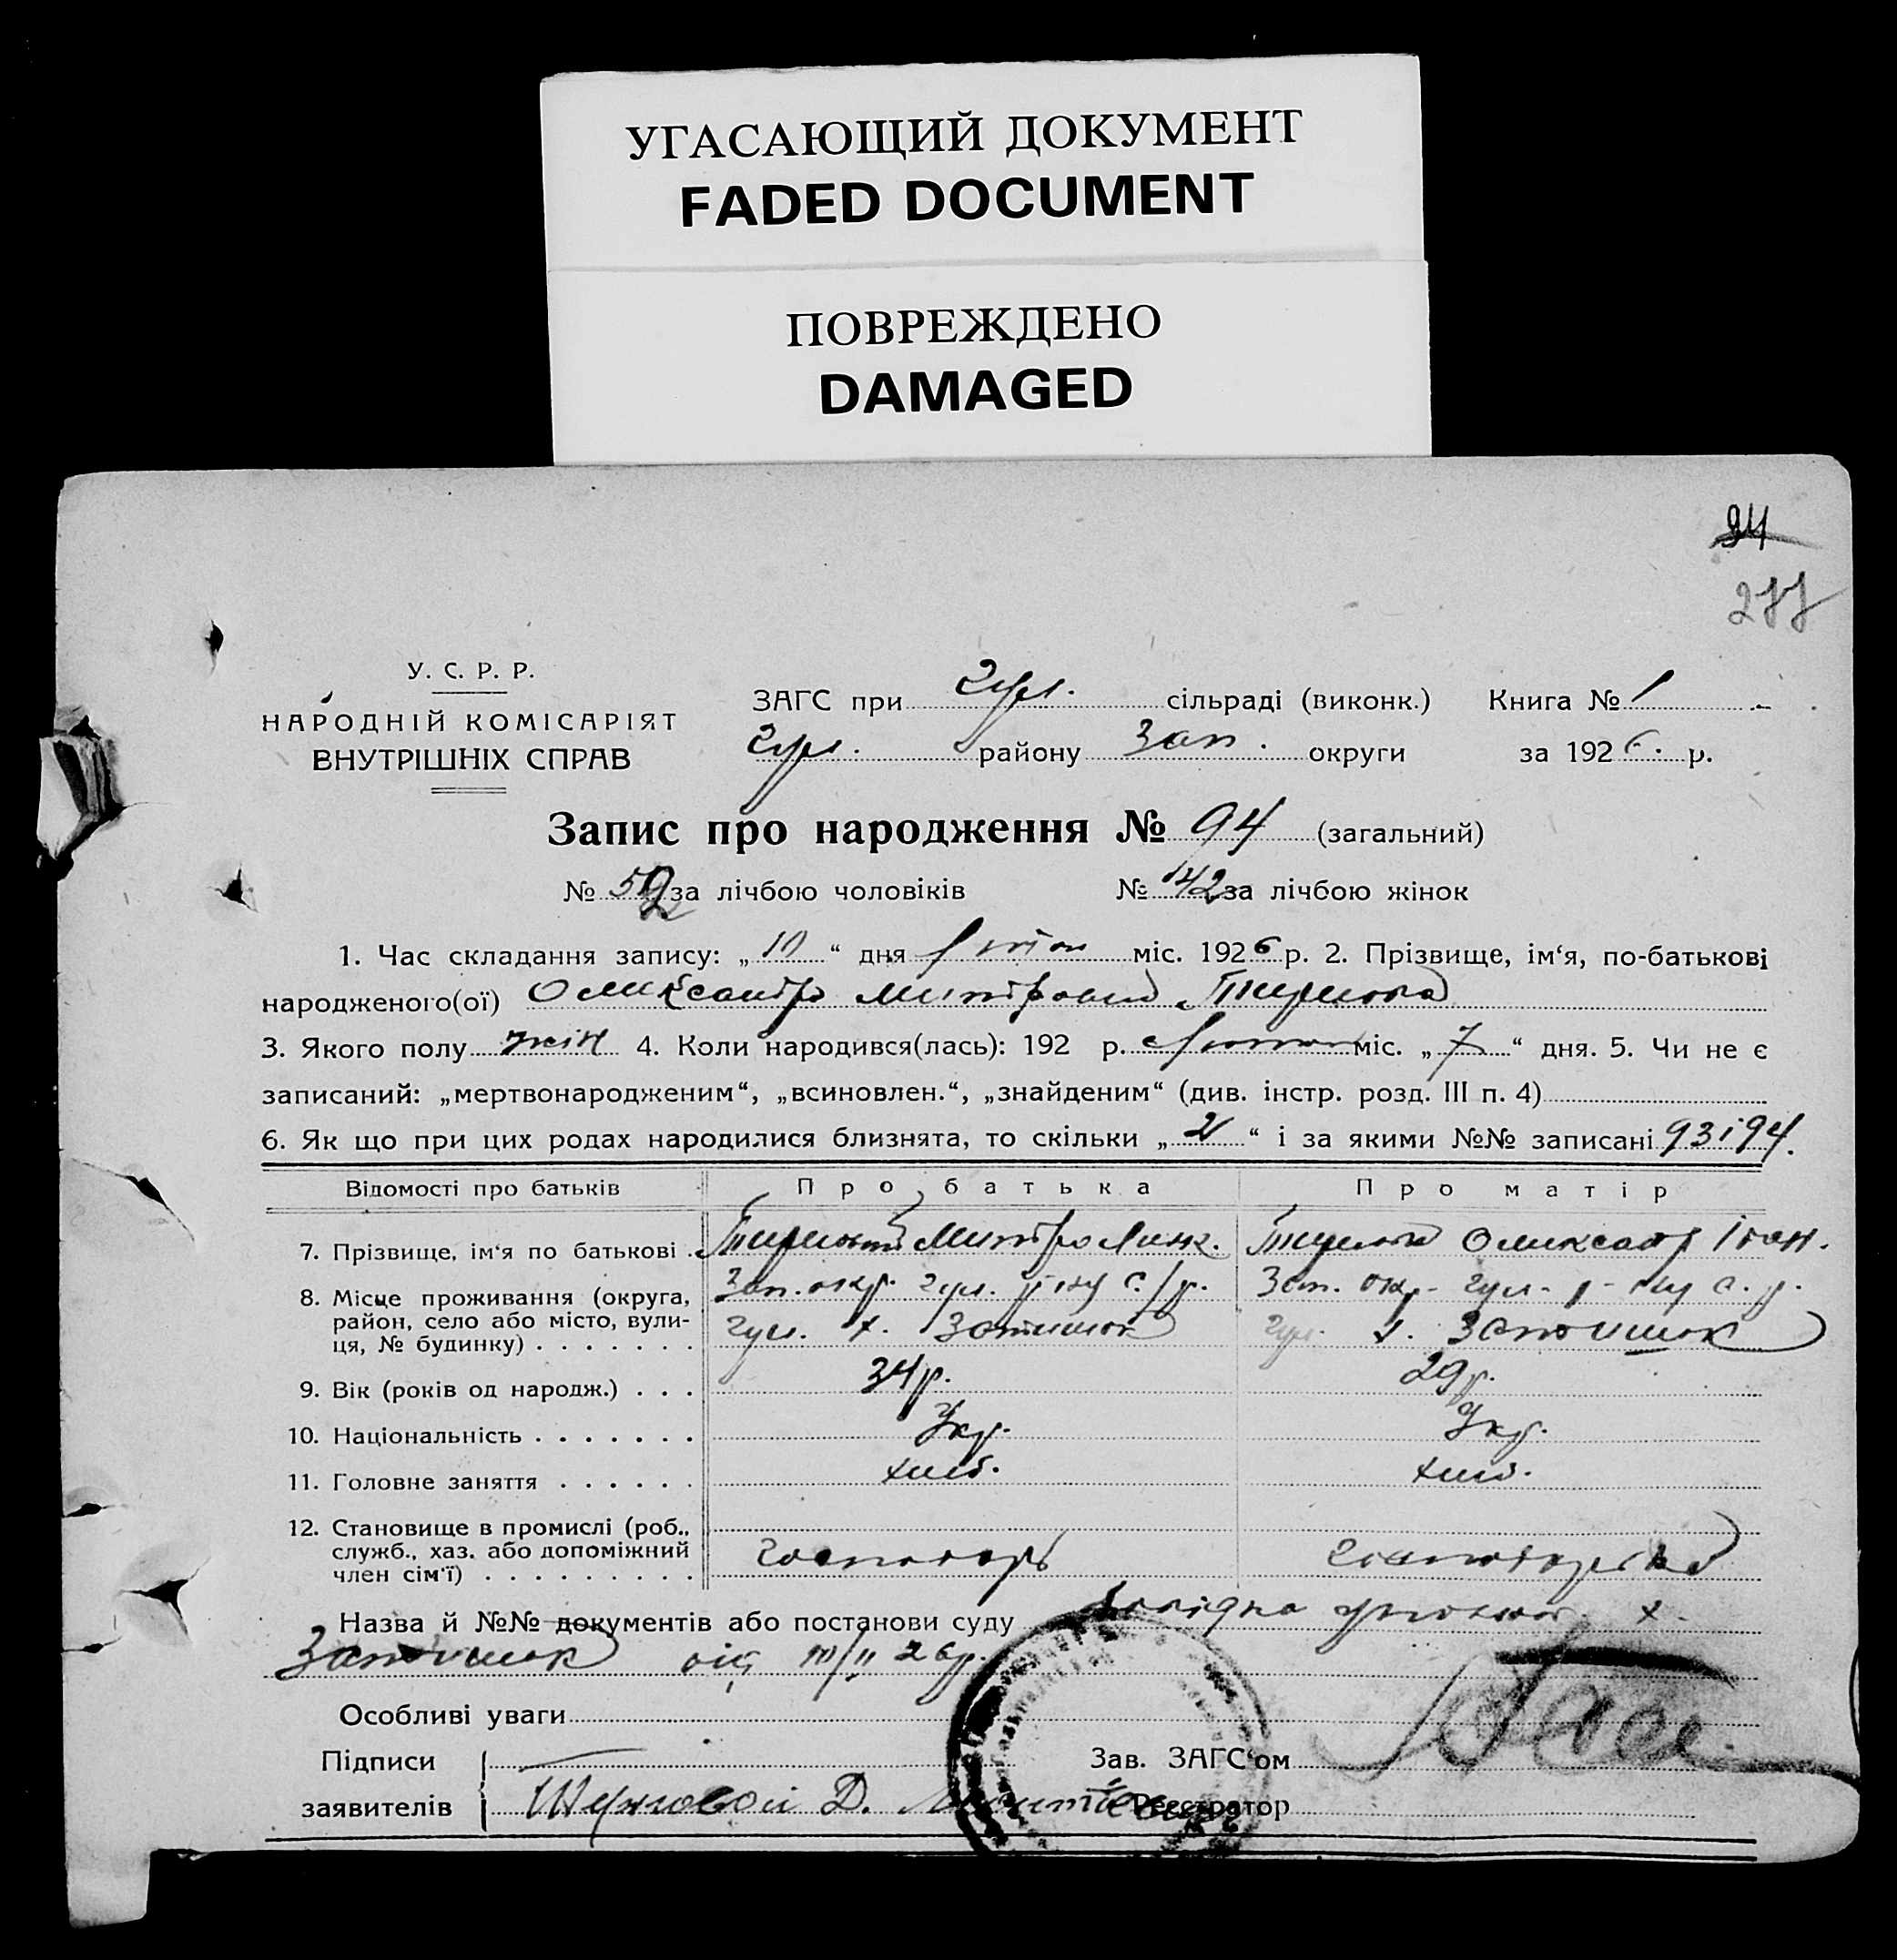 УГАСАЮЩИЙ ДОКУМЕНТ
FADED DOCUMENT
ПОВРЕЖДЕНО
DAMAGED
94
У. С. Р. Р.
НАРОДНІЙ КОМІСАРІЯТ
ВНУТРІШНІХ СПРАВ
ЗАГС при Гул. сільраді (виконк.) Книга № 1
Гул. району Зап. округи за 1926. р.
Запис про народження № 94 (загальний)
№ 52 за лічбою чоловіків № 42 за лічбою жінок
1. Час складання запису: „10“ дня міс. 1926 р. 2. Прізвище, ім‘я, по-батькові
народженого(ої) Олександра Митровна
3. Якого полу жін 4. Коли народився(лась): 192 р. міс. „7“ дня. 5. Чи не є
записаний: „мертвонародженим“, „всиновлен.“, „знайденим“ (див. інстр. розд. III п. 4)
6. Як що при цих родах народилися близнята, то скільки „2“ і за якими №№ записані 93 і 94.
Відомості про батьків Про батька Про матір
7. Прізвище, ім‘я по батькові Митро Олександр Іван.
8. Місце проживання (округа, Зап. окр. Гул. р-ну с./р. Зап. окр. Гул. р-ну с. р.
район, село або місто, вули- Гул. х. Затишок Гул. х. Затишок
ця, № будинку)
9. Вік (років од народж.) 34 р. 29 р.
10. Національність Укр. Укр.
11. Головне заняття хліб. хліб.
12. Становище в промислі (роб.,
служб., хаз. або допоміжний господарь
член сім‘ї)
Назва й №№ документів або постанови суду х.
Затишок від 10/II 26 р.
Особливі уваги
Підписи Зав. ЗАГС‘ом
заявителів Д. Реєстратор